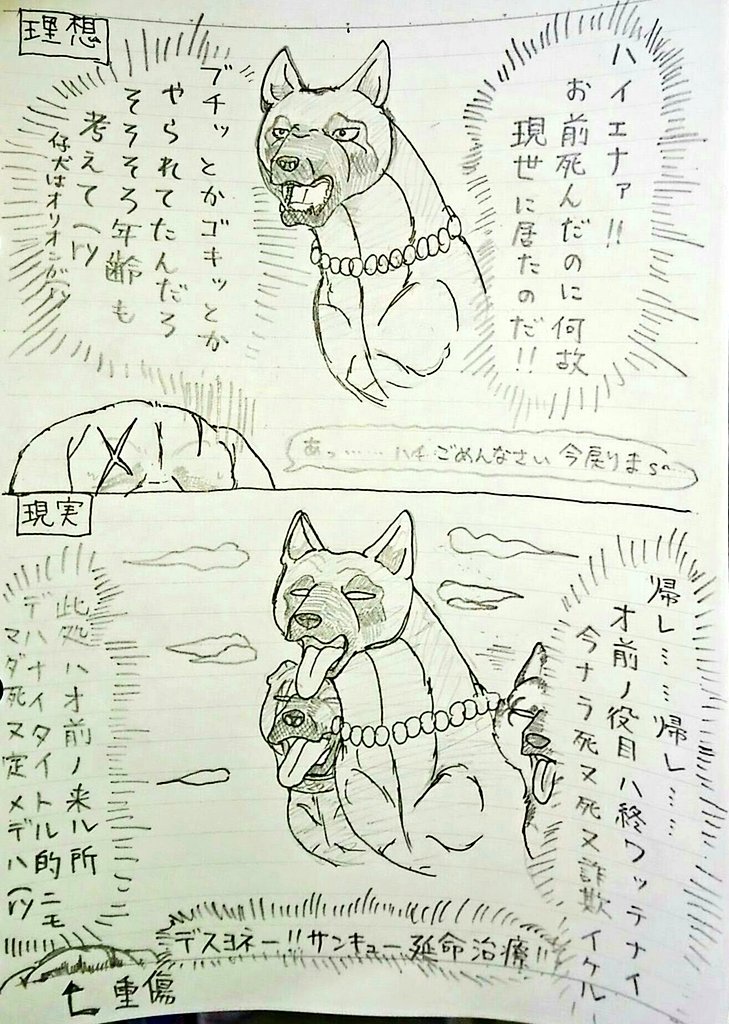 理想
ハイエナァ!!
お前死んだのに何故
現世に居たのだ!!
ブチッとかゴキッとか
やられてたんだろ
そろそろ年齢も
考えて(ry
仔犬はオリオンが(ry
あっ……ハイごめんなさい今戻りまs~
現実
帰レ……帰レ……
オ前ノ役目ハ終ワッテナイ
今ナラ死ヌ死ヌ詐欺イケル…
此処ハオ前ノ来ル所
デハナイタイトル的ニモ
マダ死ヌ定メデハ(ry
デスヨネー!!サンキュー延命治療!!
重傷